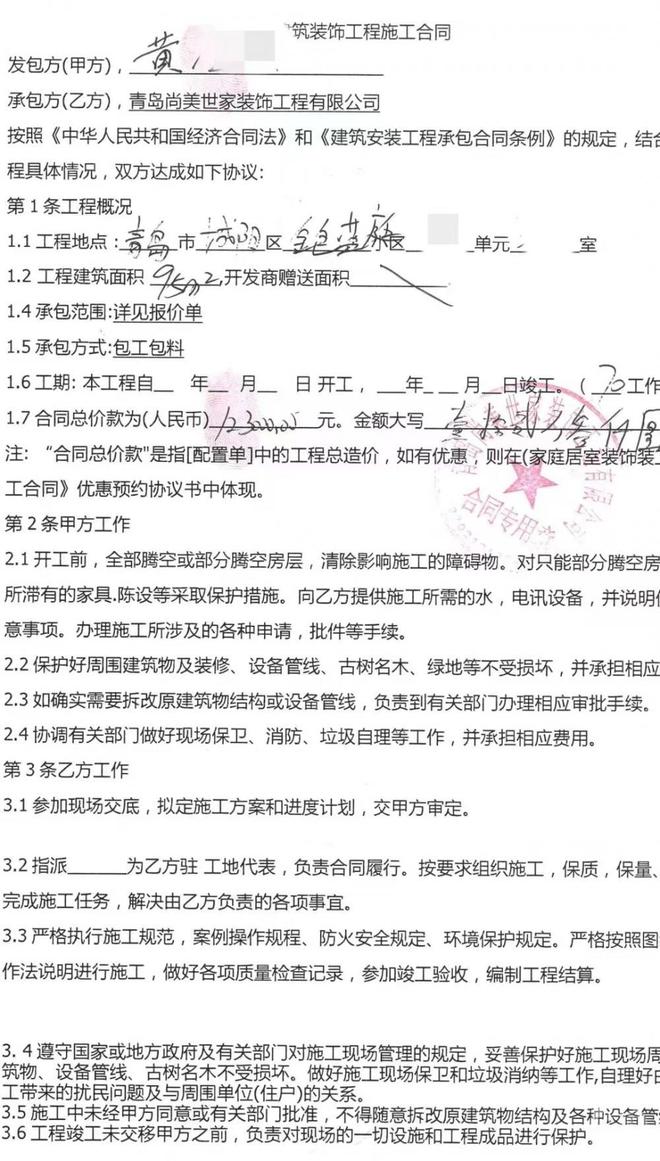 建筑装饰工程施工合同
发包方(甲方)，黄
承包方(乙方)，青岛尚美世家装饰工程有限公司
按照《中华人民共和国经济合同法》和《建筑安装工程承包合同条例》的规定，结合
程具体情况，双方达成如下协议:
第1条工程概况
1.1 工程地点：青岛 市 城阳 区 金色
区 单元 室
1.2 工程建筑面积 95m2,开发商赠送面积
1.4 承包范围:详见报价单
1.5 承包方式:包工包料
1.6 工期: 本工程自__ 年__ 月__ 日 开工，__年_ _月__日竣工。（ 70 工作
1.7 合同总价款为(人民币) 123000.00 元。金额大写 壹拾贰万叁仟圆
注: “合同总价款"是指[配置单]中的工程总造价，如有优惠，则在(家庭居室装饰装
工合同》优惠预约协议书中体现。
合同专用章
第2条甲方工作
2.1 开工前，全部腾空或部分腾空房层，清除影响施工的障碍物。对只能部分腾空房
所滞有的家具.陈设等采取保护措施。向乙方提供施工所需的水，电讯设备，并说明
意事项。办理施工所涉及的各种申请，批件等手续。
2.2 保护好周围建筑物及装修、设备管线、古树名木、绿地等不受损坏，并承担相应
2.3 如确实需要拆改原建筑物结构或设备管线，负责到有关部门办理相应审批手续。
2.4 协调有关部门做好现场保卫、消防、垃圾自理等工作，并承担相应费用。
第3条乙方工作
3.1 参加现场交底，拟定施工方案和进度计划，交甲方审定。
3.2 指派______为乙方驻 工地代表，负责合同履行。按要求组织施工，保质，保量、
完成施工任务，解决由乙方负责的各项事宜。
3.3 严格执行施工规范，案例操作规程、防火安全规定、环境保护规定。严格按照图
作法说明进行施工，做好各项质量检查记录，参加竣工验收，编制工程结算。
3. 4 遵守国家或地方政府及有关部门对施工现场管理的规定，妥善保护好施工现场周
筑物、设备管线、古树名木不受损坏。做好施工现场保卫和垃圾消纳等工作,自理好由
工带来的扰民问题及与周围单位(住户)的关系。
3.5 施工中未经甲方同意或有关部门批准，不得随意拆改原建筑物结构及各种设备管
3.6 工程竣工未交移甲方之前，负责对现场的一切设施和工程成品进行保护。